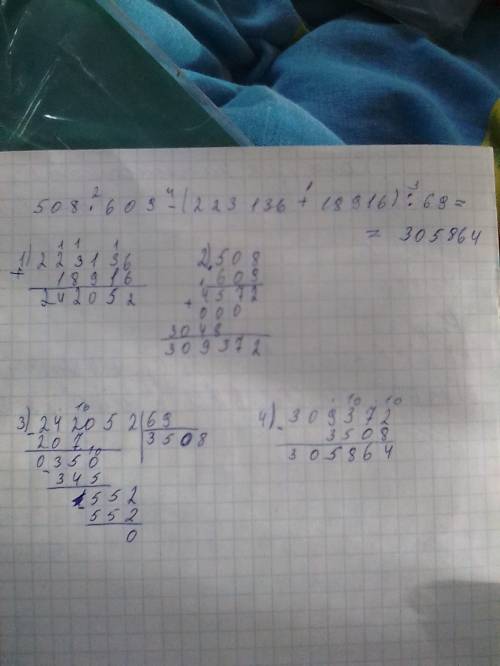 508 · 609 - (223 136 + 18916) : 69 =
= 305864
1) 223136
+ 18916
242052
2) 508
· 609
4572
+ 000
3048
309372
3) 242052 | 69
- 207 | 3508
0350
- 345
552
- 552
0
4) 309372
- 3508
305864